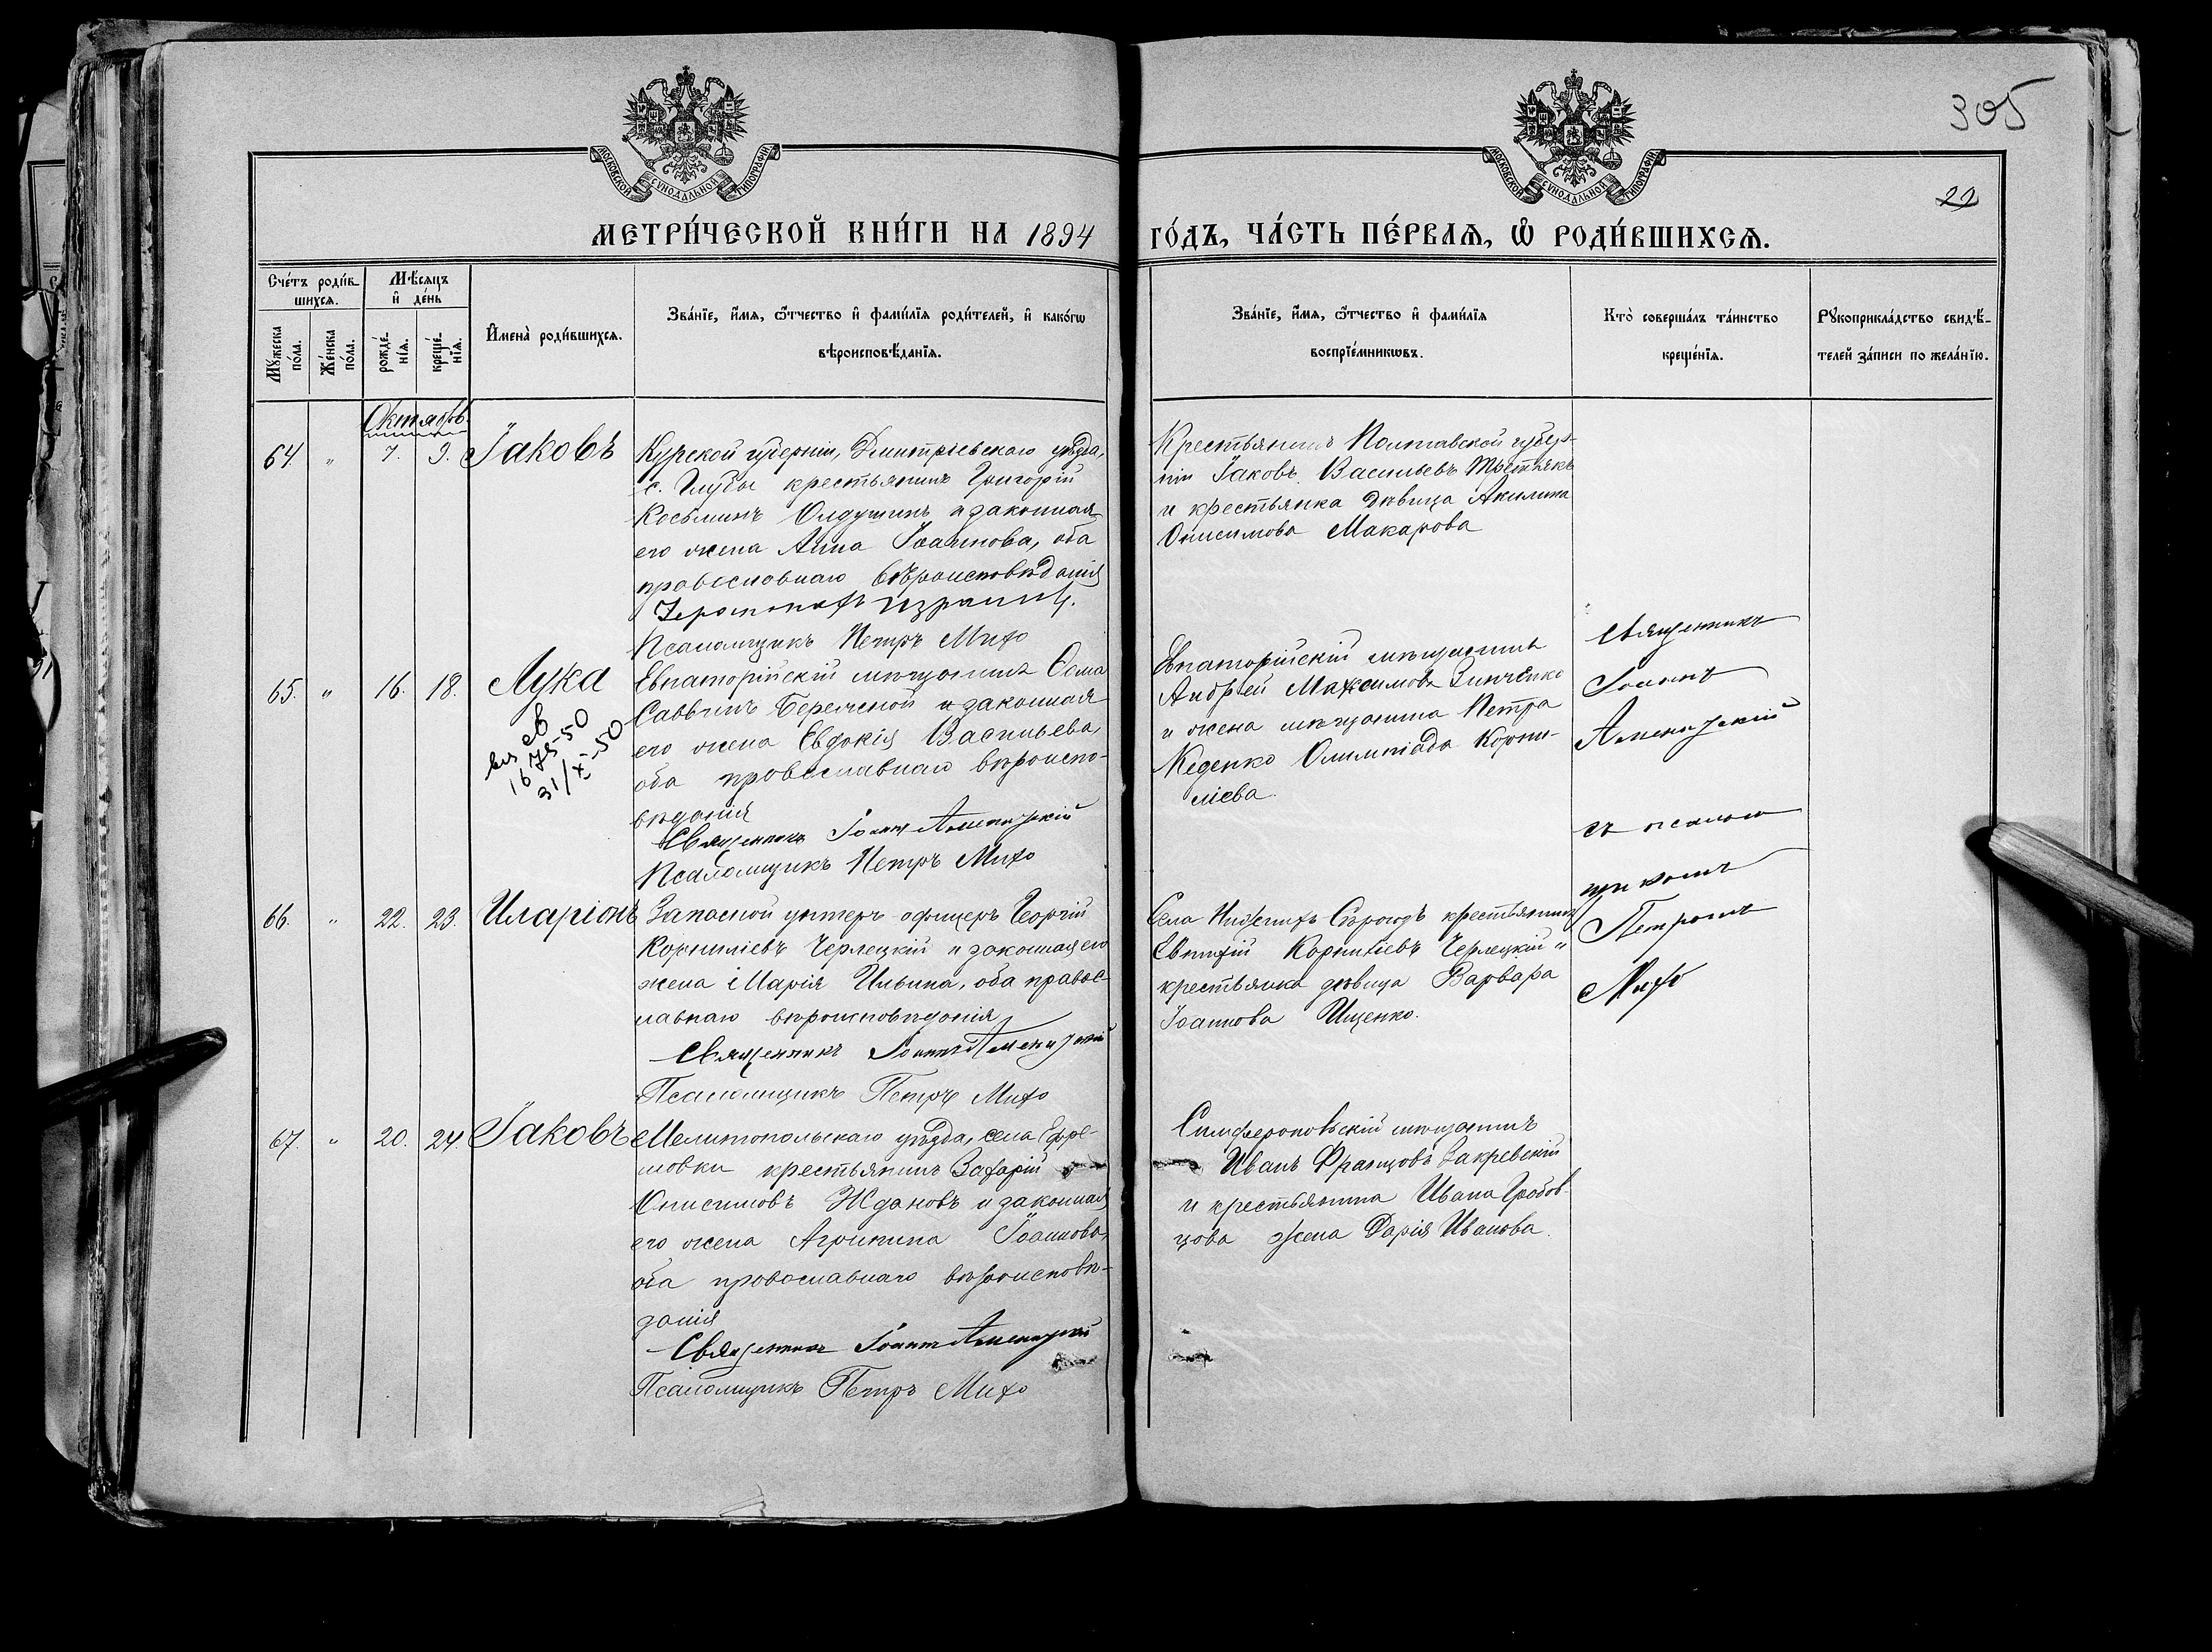 305
22
МОСКОВСКОЙ СѴНОДАЛЬНОЙ ТИПОГРАФІИ
МОСКОВСКОЙ СѴНОДАЛЬНОЙ ТИПОГРАФІИ
МЕТРИ́ЧЕСКОЙ КНИ́ГИ НА 1894 ГО́ДЪ, ЧА́СТЬ ПЕ́РВАЯ, Ѽ РОДИ́ВШИХСЯ.
Сче́тъ роди́вшихся.
Му́жеска по́ла.
Же́нска по́ла.
Мѣ́сяцъ и́ де́нь
рожде́нїя.
креще́нїя.
И҆мена̀ роди́вшихся.
Зва́нїе, и҆́мя, ѻ҆́тчество и҆ фами́лїя роди́телей, и҆ како́гѡ
вѣроисповѣ́данїя.
Зва́нїе, и҆́мя, ѻ҆́тчество и҆ фами́лїя
воспрїе́мникѡвъ.
Кто̀ соверша́лъ та́инство
креще́нїя.
Рꙋкоприкла́дство свидѣ́-
телей за́писи по жела́нїю.
Октябрь
64. " 7. 9. Іаковъ
Курской губерніи, Дмитріевскаго уѣзда,
с. Глубы крестьянинъ Григорій
Косьминъ Олдушинъ и законная
его жена Анна Іоаннова, оба
православнаго вѣроисповѣданія
Псаломщикъ Петръ Михо
Крестьянинъ Полтавской губер-
ніи Іаковъ Васильевъ Третьякъ
и крестьянка дѣвица Акилина
Онисимова Макарова
65. " 16. 18. Лука
св
1675-50
31/X-50
Евпаторійскій мѣщанинъ Ѳома
Саввинъ Бережной и законная
его жена Евдокія Васильева,
оба православнаго вѣроиспо-
вѣданія
Священникъ Іоаннъ
Псаломщикъ Петръ Михо
Евпаторійскій мѣщанинъ
Андрей Максимовъ Зинченко
и жена мѣщанина Петра
Кеденко Олимпіада Корни-
ліева.
Священникъ
Іоаннъ
съ псалом
щикомъ
Петромъ
Михо
66. " 22. 23. Иларіонъ
Запасной унтеръ офицеръ Георгій
Корниліевъ Черлецкій и законная его
жена Марія Ильина, оба правос-
лавнаго вѣроисповѣданія
Священникъ Іоаннъ
Псаломщикъ Петръ Михо
Села Нижнихъ Сѣрогозъ крестьянинъ
Евтихій Корниліевъ Черлецкій и
крестьянка дѣвица Варвара
Іоаннова Ищенко.
67. " 20. 24. Іаковъ
Мелитопольскаго уѣзда, села Ефре-
мовки крестьянинъ Захарій
Онисимовъ Ждановъ и законная
его жена Агрипина Іоаннова,
оба православнаго вѣроисповѣ-
данія
Священникъ Іоаннъ
Псаломщикъ Петръ Михо
Симферопольскій мѣщанинъ
Иванъ Францовъ Закревскій
и крестьянина Ивана Гробов-
цова жена Дарія Иванова.